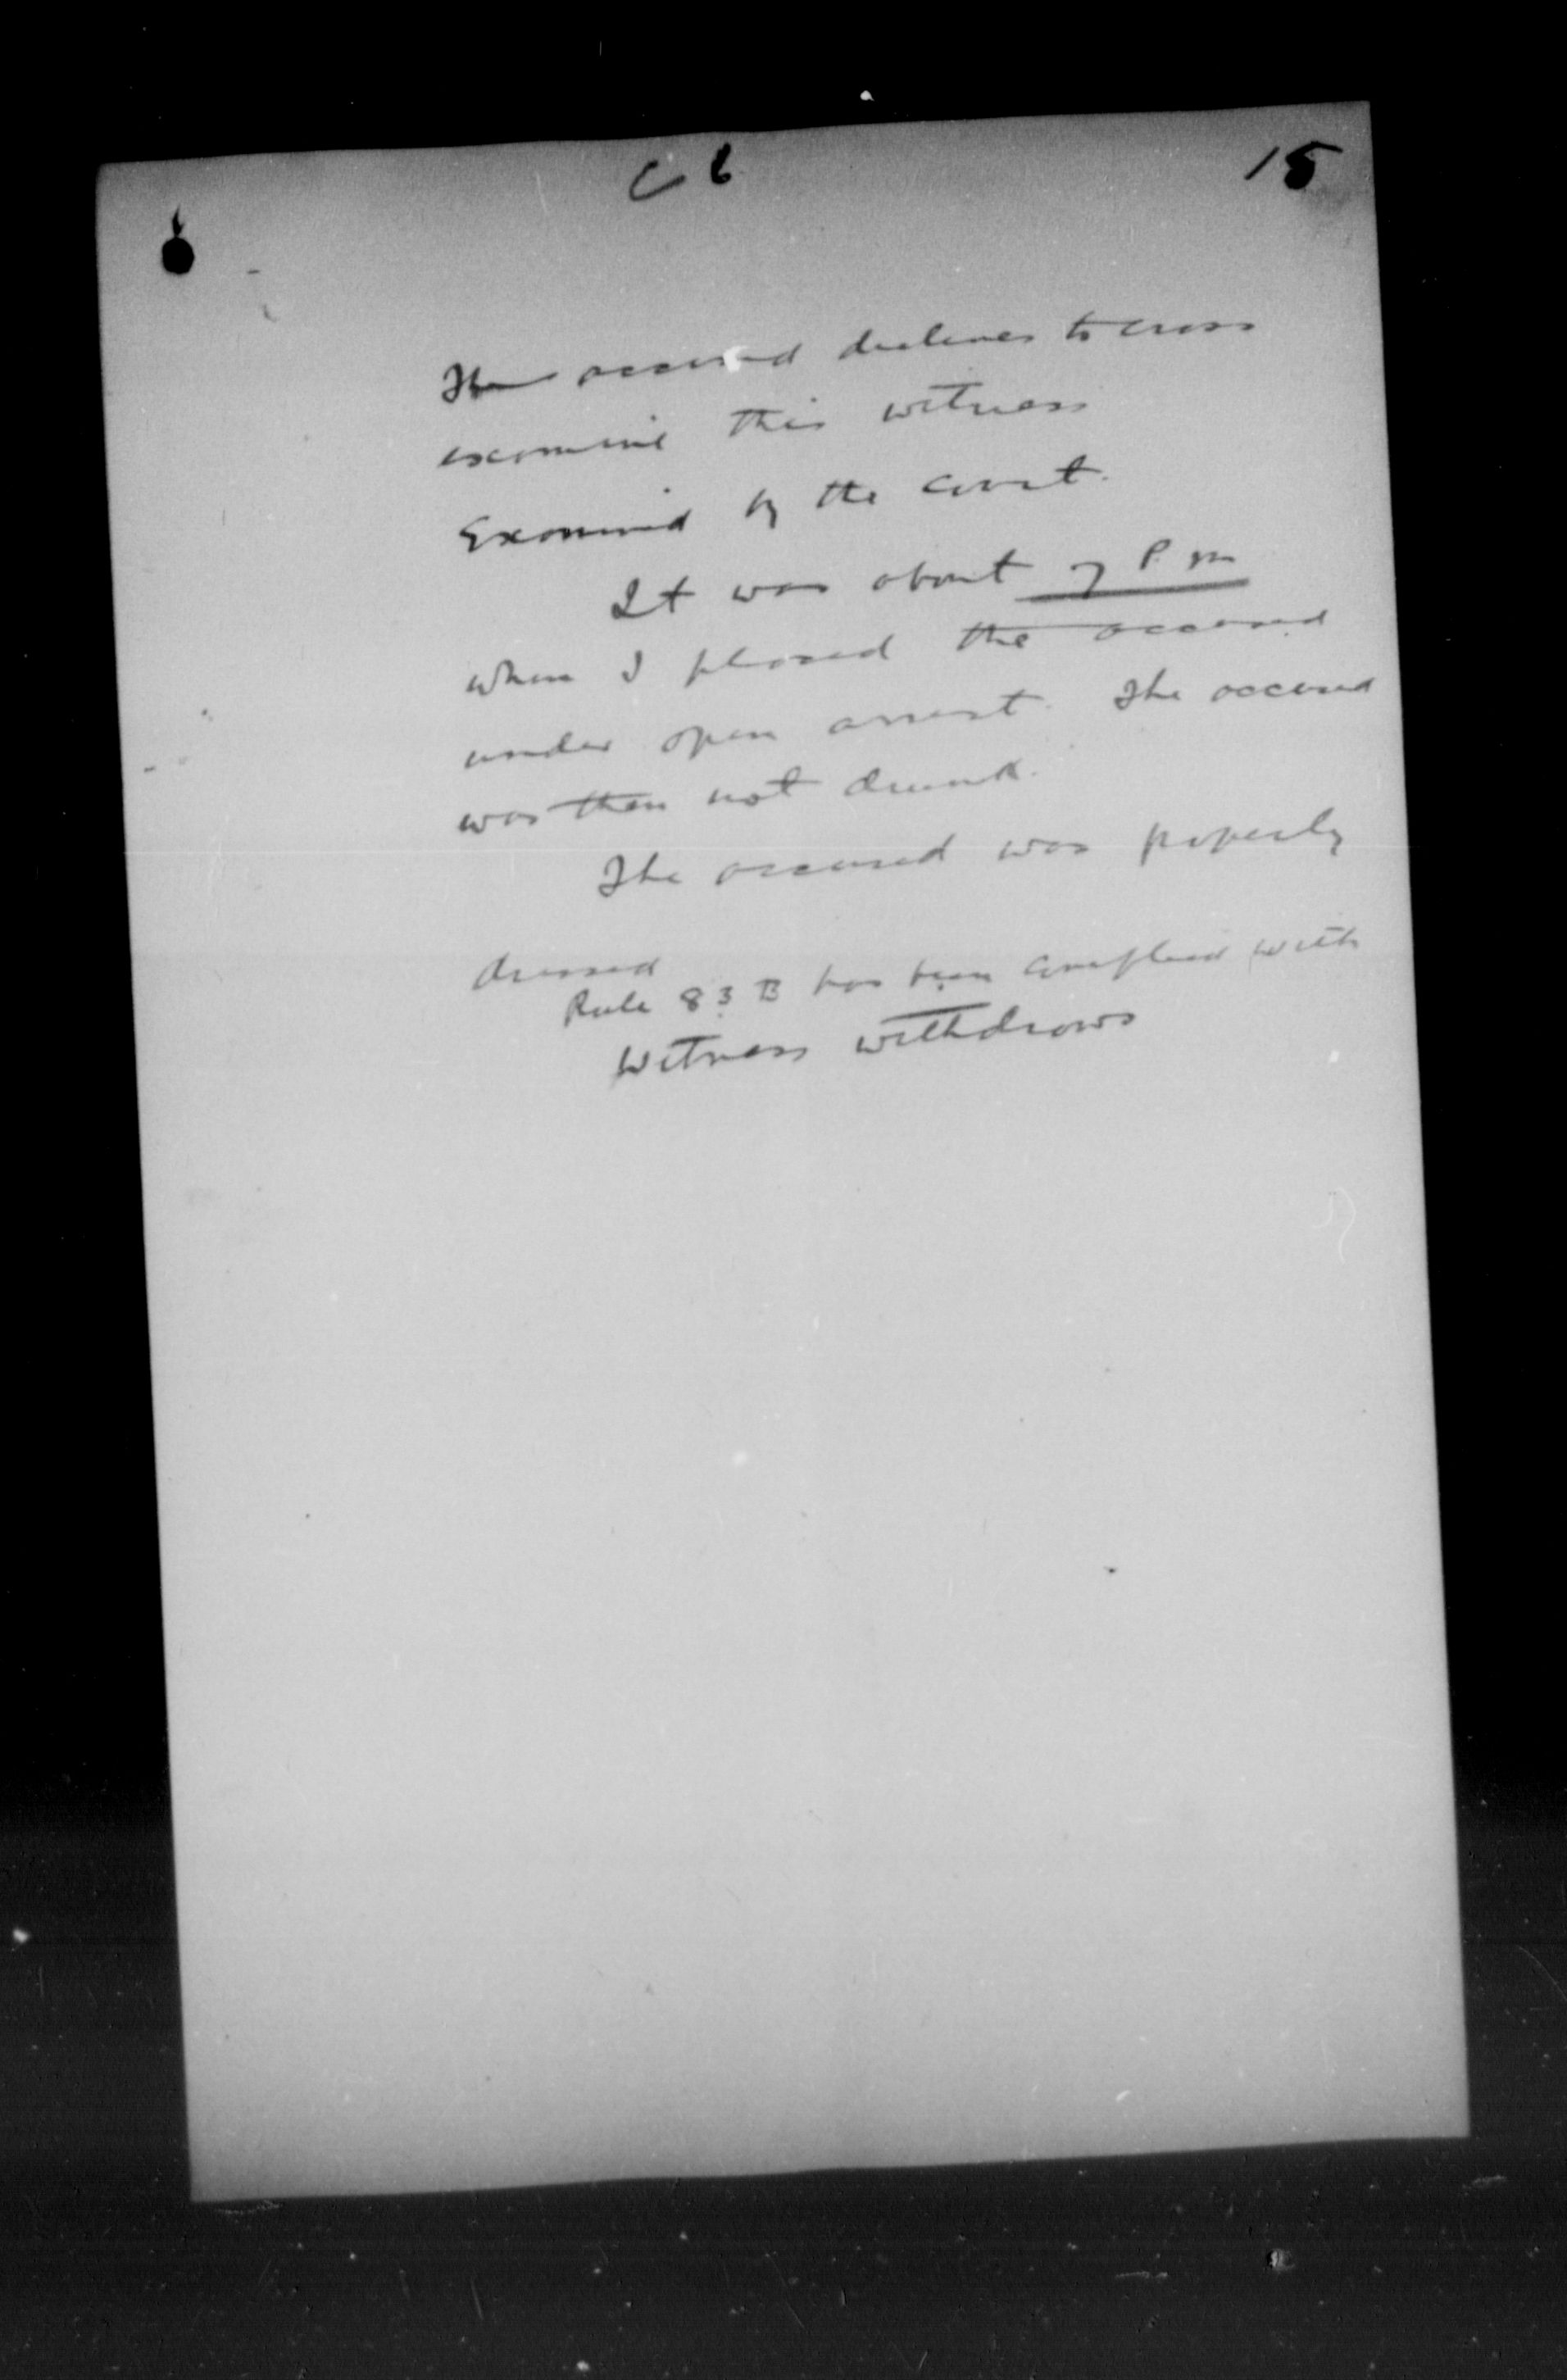 C 6
15
The accused declines to cross
examine this witness
Examined by the court.
It was about 7 P. m
when I placed the accused
under open arrest. The accused
was then not drunk.
The accused was properly
dressed
Rule 83 B has been complied with
Witness withdraws